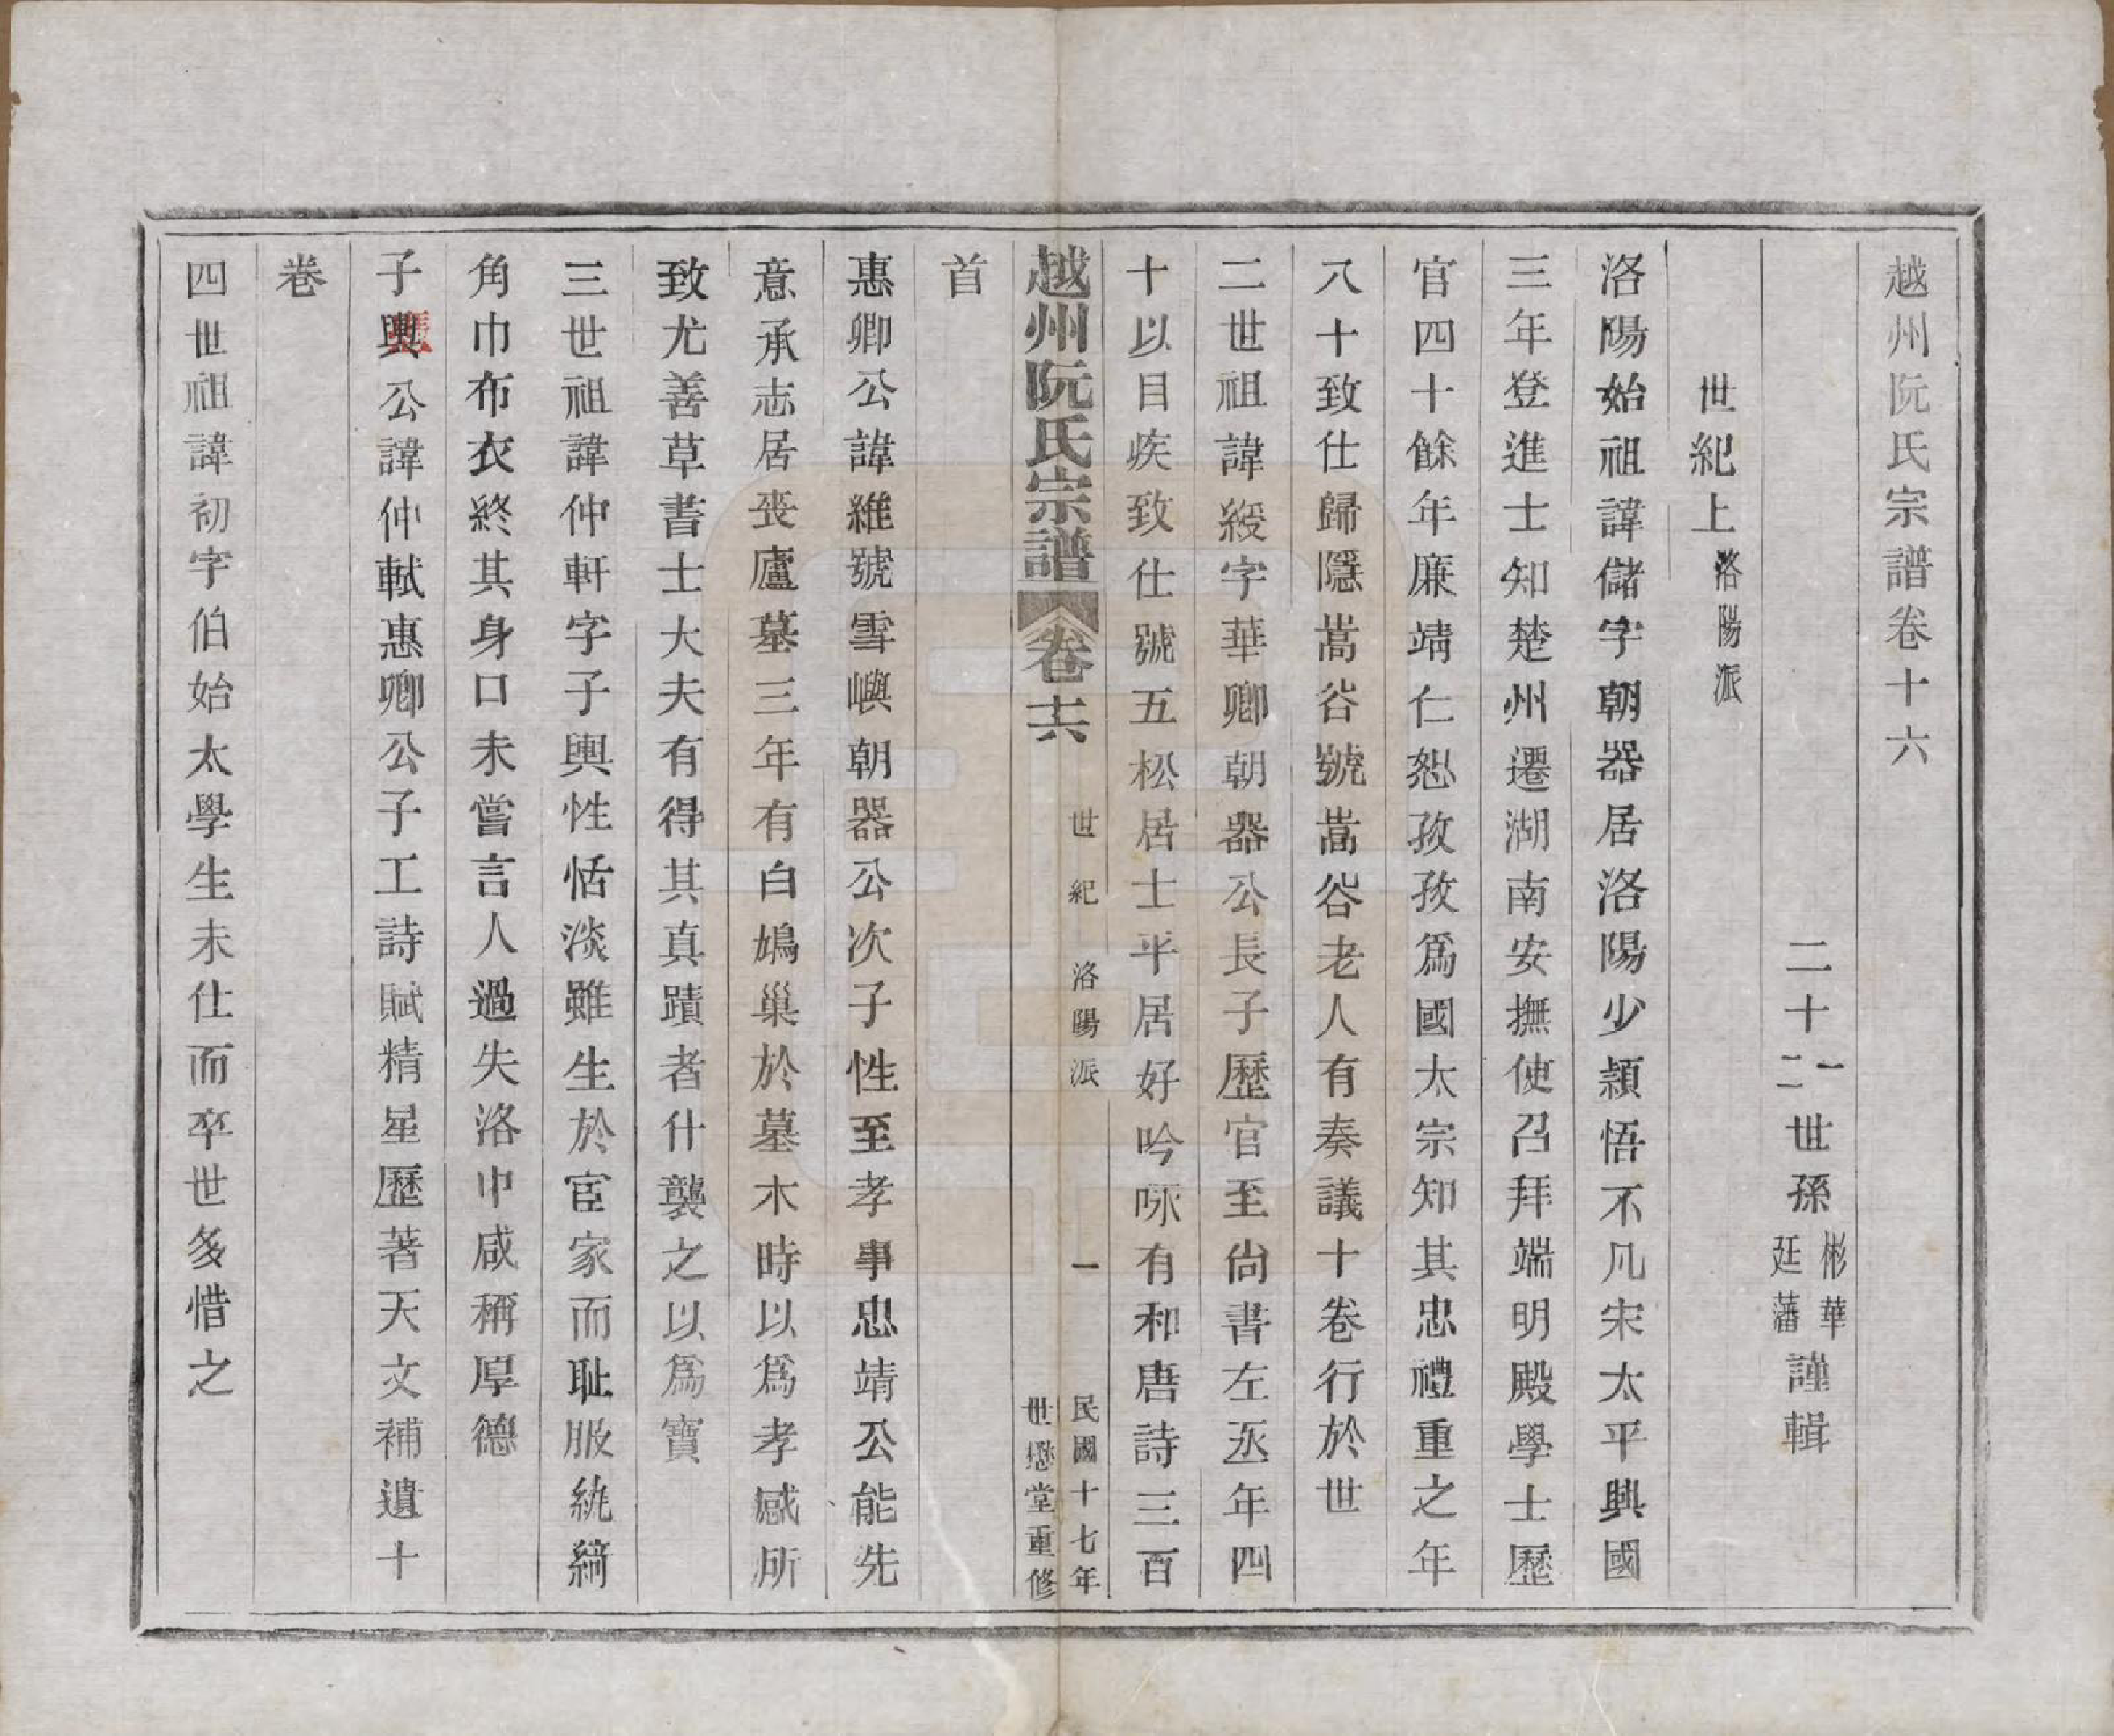 越州阮氏宗譜卷十六
二十一二世孫彬華廷藩謹輯
世紀上洛陽派
洛陽始祖諱儲字朝器居洛陽少穎悟不凡宋太平興國
三年登進士知楚州遷湖南安撫使召拜端明殿學士歷
官四十餘年廉靖仁恕孜孜爲國太宗知其忠禮重之年
八十致仕歸隱嵩谷號嵩谷老人有奏議十卷行於世
二世祖諱綬字華卿朝器公長子歷官至尙書左丞年四
十以目疾致仕號五松居士平居好吟咏有和唐詩三百
越州阮氏宗譜 卷十六 世紀 洛陽派 一 民國十七年
世懋堂重修
首
惠卿公諱維號雪嶼朝器公次子性至孝事忠靖公能先
意承志居喪廬墓三年有白鳩巢於墓木時以爲孝感所
致尤善草書士大夫有得其真蹟者什襲之以爲寶
三世祖諱仲軒字子輿性恬淡雖生於宦家而耻服紈綺
角巾布衣終其身口未嘗言人過失洛中咸稱厚德
子輿公諱仲軾惠卿公子工詩賦精星歷著天文補遺十
卷
四世祖諱初字伯始太學生未仕而卒世多惜之